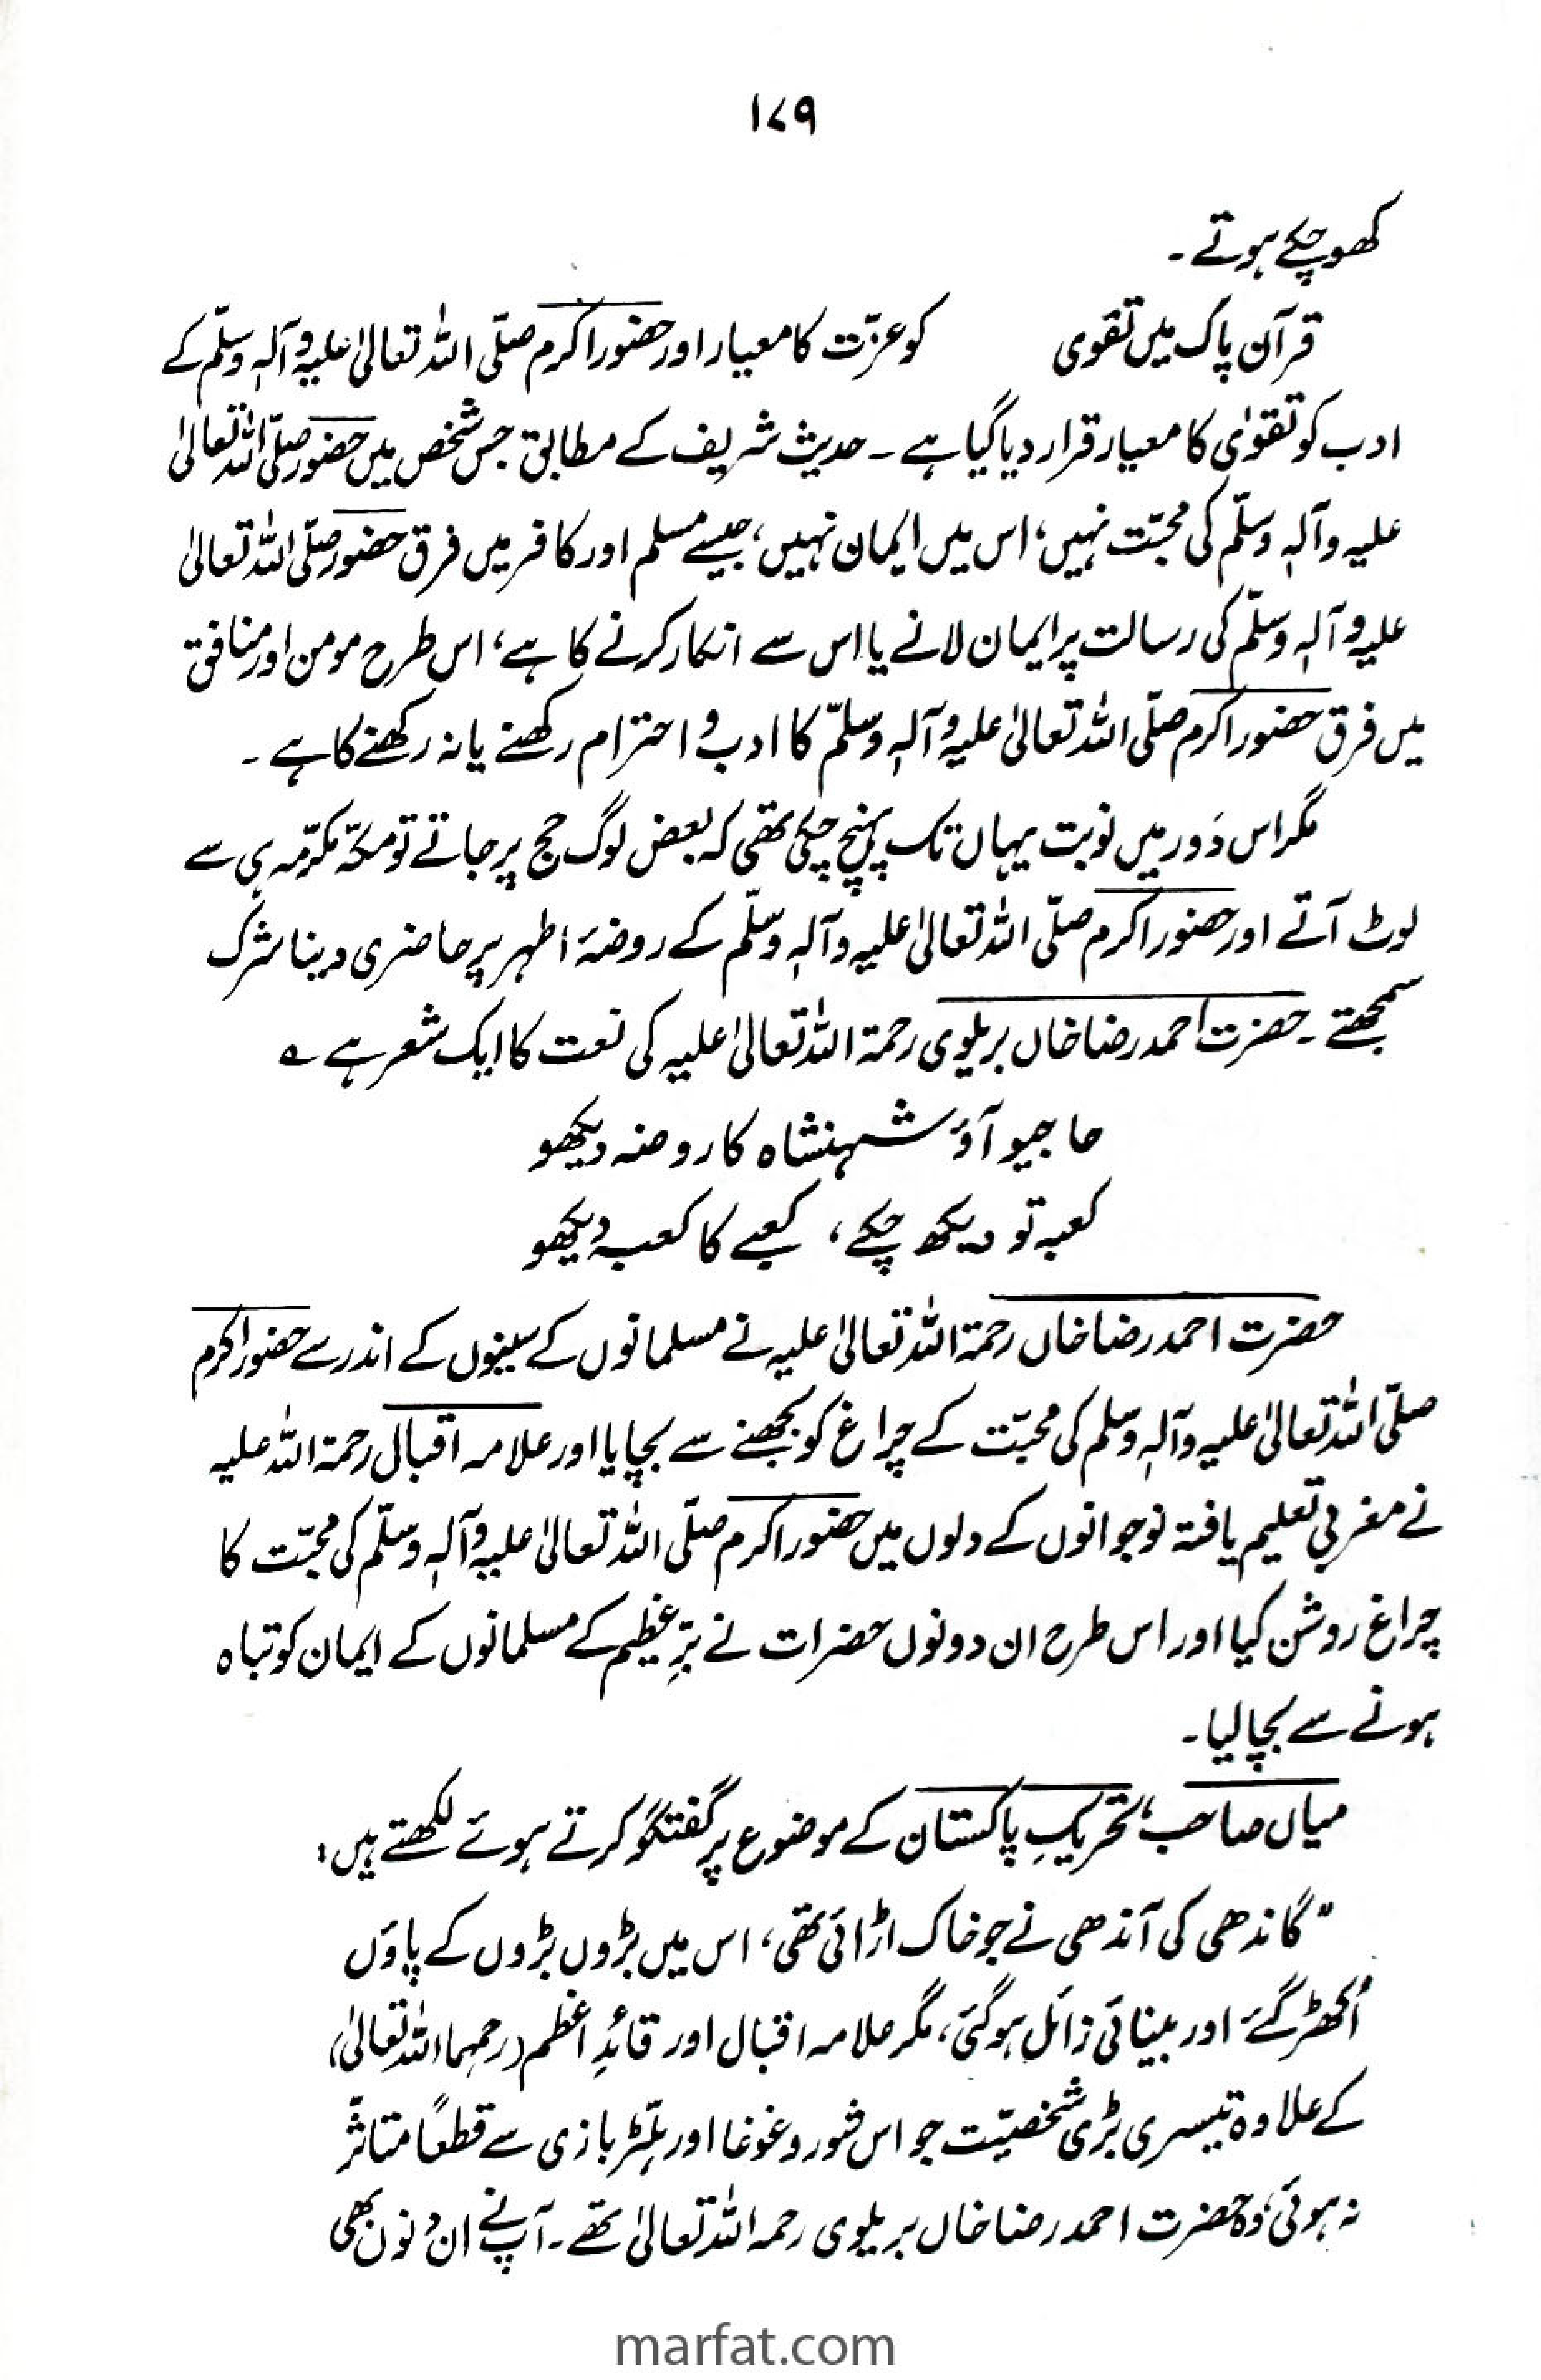 ۱۷۹
کھو چکے ہوتے ۔
قرآن پاک میں تقوی کو عزّت کا معیار اور حضور اکرم صلّی اللہ تعالیٰ علیہ وآلہٖ وسلّم کے
ادب کو تقوٰی کا معیار قرار دیا گیا ہے ۔ حدیث شریف کے مطابق جس شخص میں حضور صلّی اللہ تعالیٰ
علیہ وآلہٖ وسلّم کی محبّت نہیں، اس میں ایمان نہیں، جیسے مسلم اور کافر میں فرق حضور صلّی اللہ تعالیٰ
علیہ وآلہٖ وسلّم کی رسالت پر ایمان لانے یا اس سے انکار کرنے کا ہے، اس طرح مومن اور منافق
میں فرق حضور اکرم صلّی اللہ تعالیٰ علیہ وآلہٖ وسلّم کا ادب و احترام رکھنے یا نہ رکھنے کا ہے ۔
مگر اس دَور میں نوبت یہاں تک پہنچ چکی تھی کہ بعض لوگ حج پر جاتے تو مکّہ مکرّمہ ہی سے
لوٹ آتے اور حضور اکرم صلّی اللہ تعالیٰ علیہ وآلہٖ وسلّم کے روضۂ اطہر پر حاضری دینا شرک
سمجھتے ۔ حضرت احمد رضا خاں بریلوی رحمۃ اللہ تعالیٰ علیہ کی نعت کا ایک شعر ہے ؎
حاجیو آؤ شہنشاہ کا روضہ دیکھو
کعبہ تو دیکھ چکے، کعبے کا کعبہ دیکھو
حضرت احمد رضا خاں رحمۃ اللہ تعالیٰ علیہ نے مسلمانوں کے سینوں کے اندر سے حضور اکرم
صلّی اللہ تعالیٰ علیہ وآلہٖ وسلم کی محبّت کے چراغ کو بجھنے سے بچایا اور علامہ اقبال رحمۃ اللہ علیہ
نے مغربی تعلیم یافتہ نوجوانوں کے دلوں میں حضور اکرم صلّی اللہ تعالیٰ علیہ وآلہٖ وسلّم کی محبّت کا
چراغ روشن کیا اور اس طرح ان دونوں حضرات نے برِّعظیم کے مسلمانوں کے ایمان کو تباہ
ہونے سے بچا لیا ۔
میاں صاحب، تحریکِ پاکستان کے موضوع پر گفتگو کرتے ہوئے لکھتے ہیں:
"گاندھی کی آندھی نے جو خاک اڑائی تھی، اس میں بڑوں بڑوں کے پاؤں
اُکھڑ گئے اور بینائی زائل ہوگئی، مگر علامہ اقبال اور قائدِ اعظم (رحمہما اللہ تعالیٰ)
کے علاوہ تیسری بڑی شخصیّت جو اس شور و غوغا اور ہلّڑ بازی سے قطعاً متاثّر
نہ ہوئی، وہ حضرت احمد رضا خاں بریلوی رحمہ اللہ تعالیٰ تھے ۔ آپ نے ان دنوں بھی
marfat.com